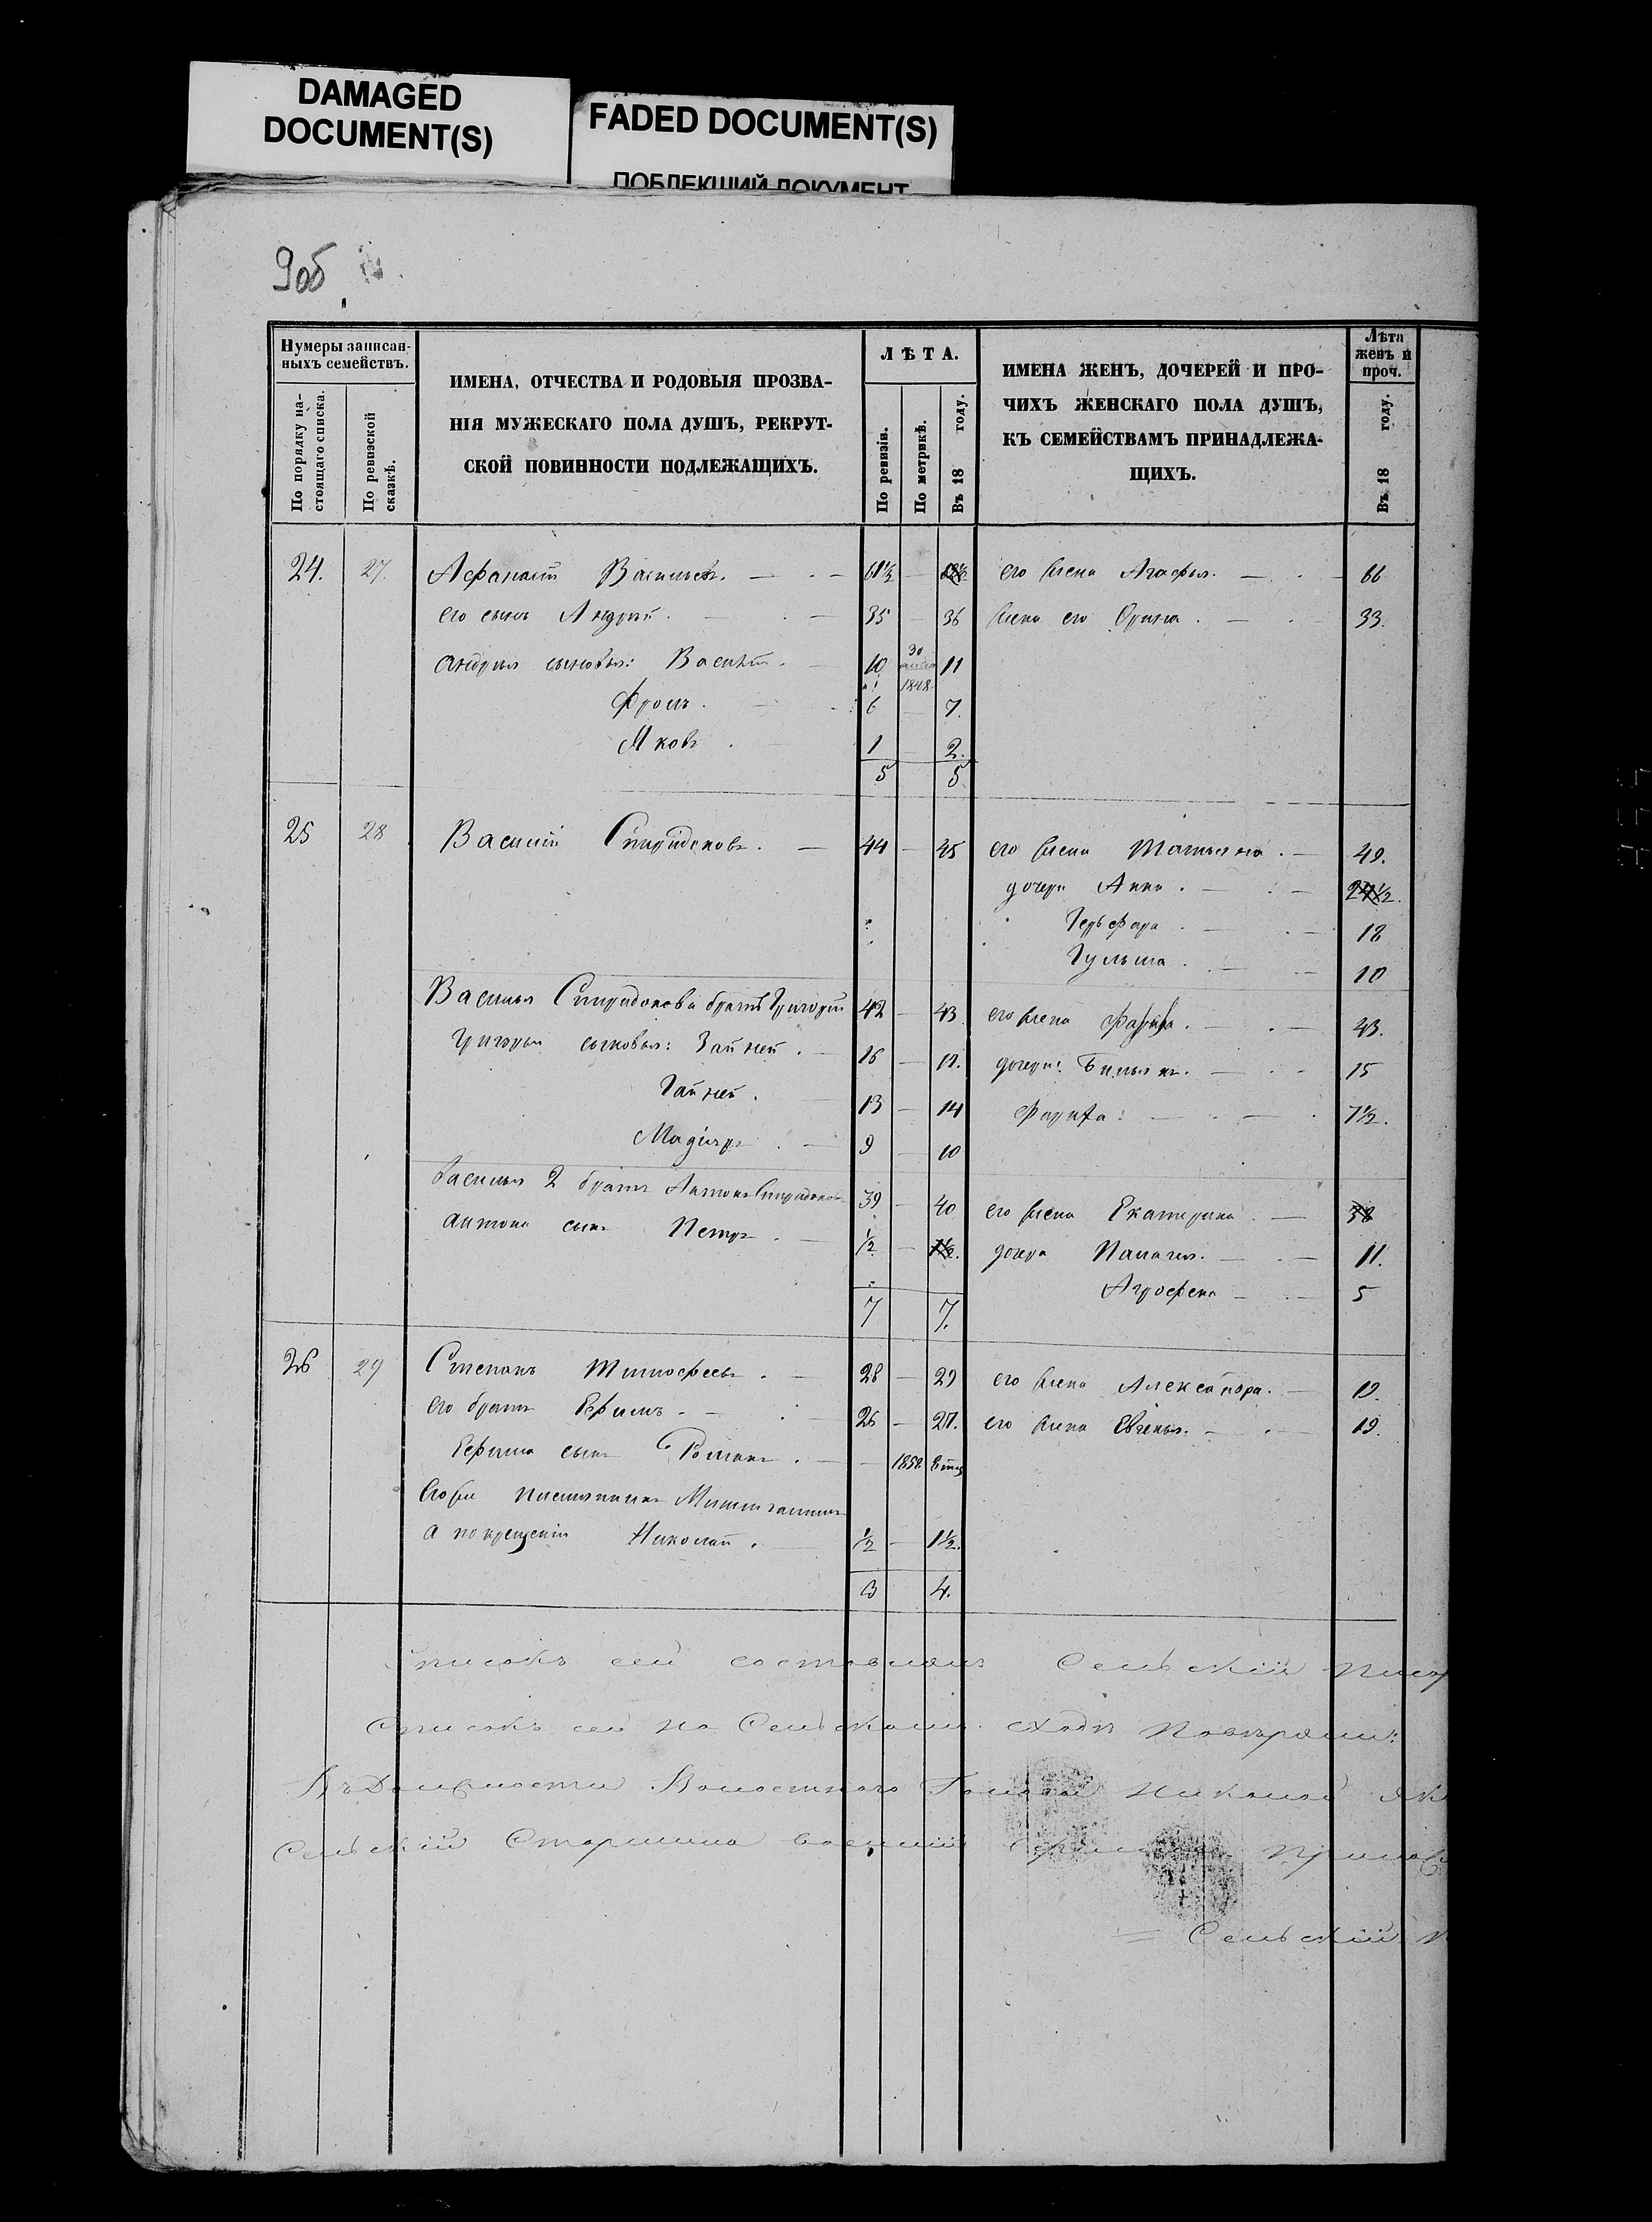 DAMAGED
DOCUMENT(S)
FADED DOCUMENT(S)
ПОБЛЕКШИЙ ДОКУМЕНТ
9об
Нумеры записан-
ныхъ семействъ.
По порядку на-
стоящаго списка.
По ревизской
сказкѣ.
ИМЕНА, ОТЧЕСТВА И РОДОВЫЯ ПРОЗВА-
НІЯ МУЖЕСКАГО ПОЛА ДУШЪ, РЕКРУТ-
СКОЙ ПОВИННОСТИ ПОДЛЕЖАЩИХЪ.
ЛѢТА.
По ревизіи.
По метрикѣ.
Въ 18 году.
ИМЕНА ЖЕНЪ, ДОЧЕРЕЙ И ПРО-
ЧИХЪ ЖЕНСКАГО ПОЛА ДУШЪ,
КЪ СЕМЕЙСТВАМЪ ПРИНАДЛЕЖА-
ЩИХЪ.
Лѣта
женъ и
проч.
Въ 18 году.
24. 27. Афанасій Васильевъ. 61½ его жена Агафья. 66
его сынъ Андрей. 35 36 жена его Орина. 33.
Андрея сыновья: Василій. 10 30 1848. 11
Фролъ. 6 7.
Яковъ. 1 2.
5 5
25 28 Василій Спиридоновъ. 44 45 его жена Татьяна. 49.
дочери Анна. 24½.
18
10
Василья Спиридонова братъ Григорій 42 43 его жена 43.
Григорья сыновья: Зайней. 16 17. дочери: 15
Гайней. 13 14 7½.
9 10
Василья 2 братъ Антонъ Спиридоновъ 39 40 его жена Екатерина. 38
Антона сынъ Петръ. ½ 1½. дочери Палагея. 11.
Агрофена 5
7 7.
26 29 Степанъ Тимофеевъ. 28 29 его жена Александра. 19.
его братъ Ефимъ. 26 27. его жена Евгенья. 19.
Ефима сынъ Романъ. 1858
Его же племянникъ
а по крещеніи Николай. ½ 1½.
3 4.
Списокъ сей составлялъ Сельскій Писар
Списокъ сей на Сельскомъ сходѣ повѣряли:
Въ Должности Волостнаго Головы Николай Як
Сельскій Старшина Василій
Сельскій